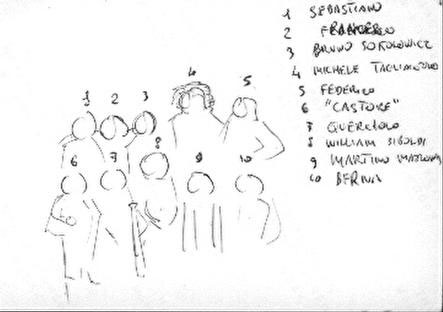 1 SEBASTIANO
2
3 BRUNO SOKOLOWICZ
4 MICHELE
5 FEDERICO
6 "CASTORE"
7 QUERCIOLO
8 WILLIAM
9 MARTINO
10
4
5
1 2 3
8
6 7 9 10